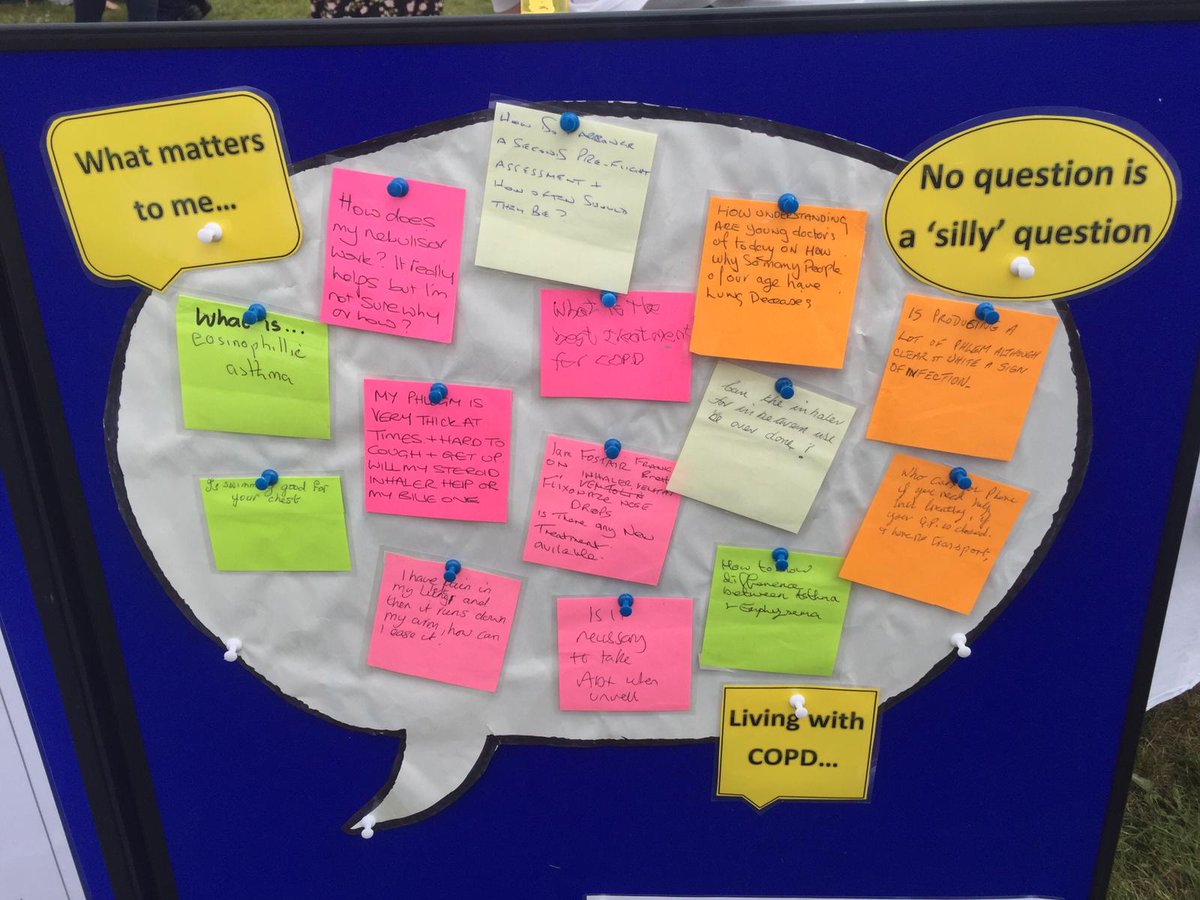 What matters
to me...
No question is
a ‘silly’ question
HOW DO I ARRANGE
A SECOND PRE-FLIGHT
ASSESSMENT +
HOW OFTEN SHOULD
THEY BE?
How does
my nebulisor
work? It really
helps but I'm
not sure why
or how?
HOW UNDERSTANDING
ARE YOUNG doctors
of today ON HOW
WHY So many People
of our age have
Lung Deceases
What is...
eosinophillic
asthma
What is the
best treatment
for COPD
IS PRODUCING A
LOT OF PHLEM ALTHOUGH
CLEAR OR WHITE A SIGN
OF INFECTION.
MY PHLEGM IS
VERY THICK AT
TIMES + HARD TO
COUGH + GET UP
WILL MY STEROID
INHALER HELP OR
MY BLUE ONE
Can the inhaler
for in between use
be over done?
I am FOSTAIR
ON INHALER
FLIXONASE NOSE
DROPS
is There any New
Treatment
available.
Is swimming good for
your chest
Who can you Phone
if you need help
with breathing, if
your G.P. is closed.
& where transport,
I have pain in
my lungs and
then it runs down
my arm, how can
I ease it.
Is it
necessary
to take
when
unwell
How to know
difference
between Asthma
+ Emphysema
Living with
COPD...